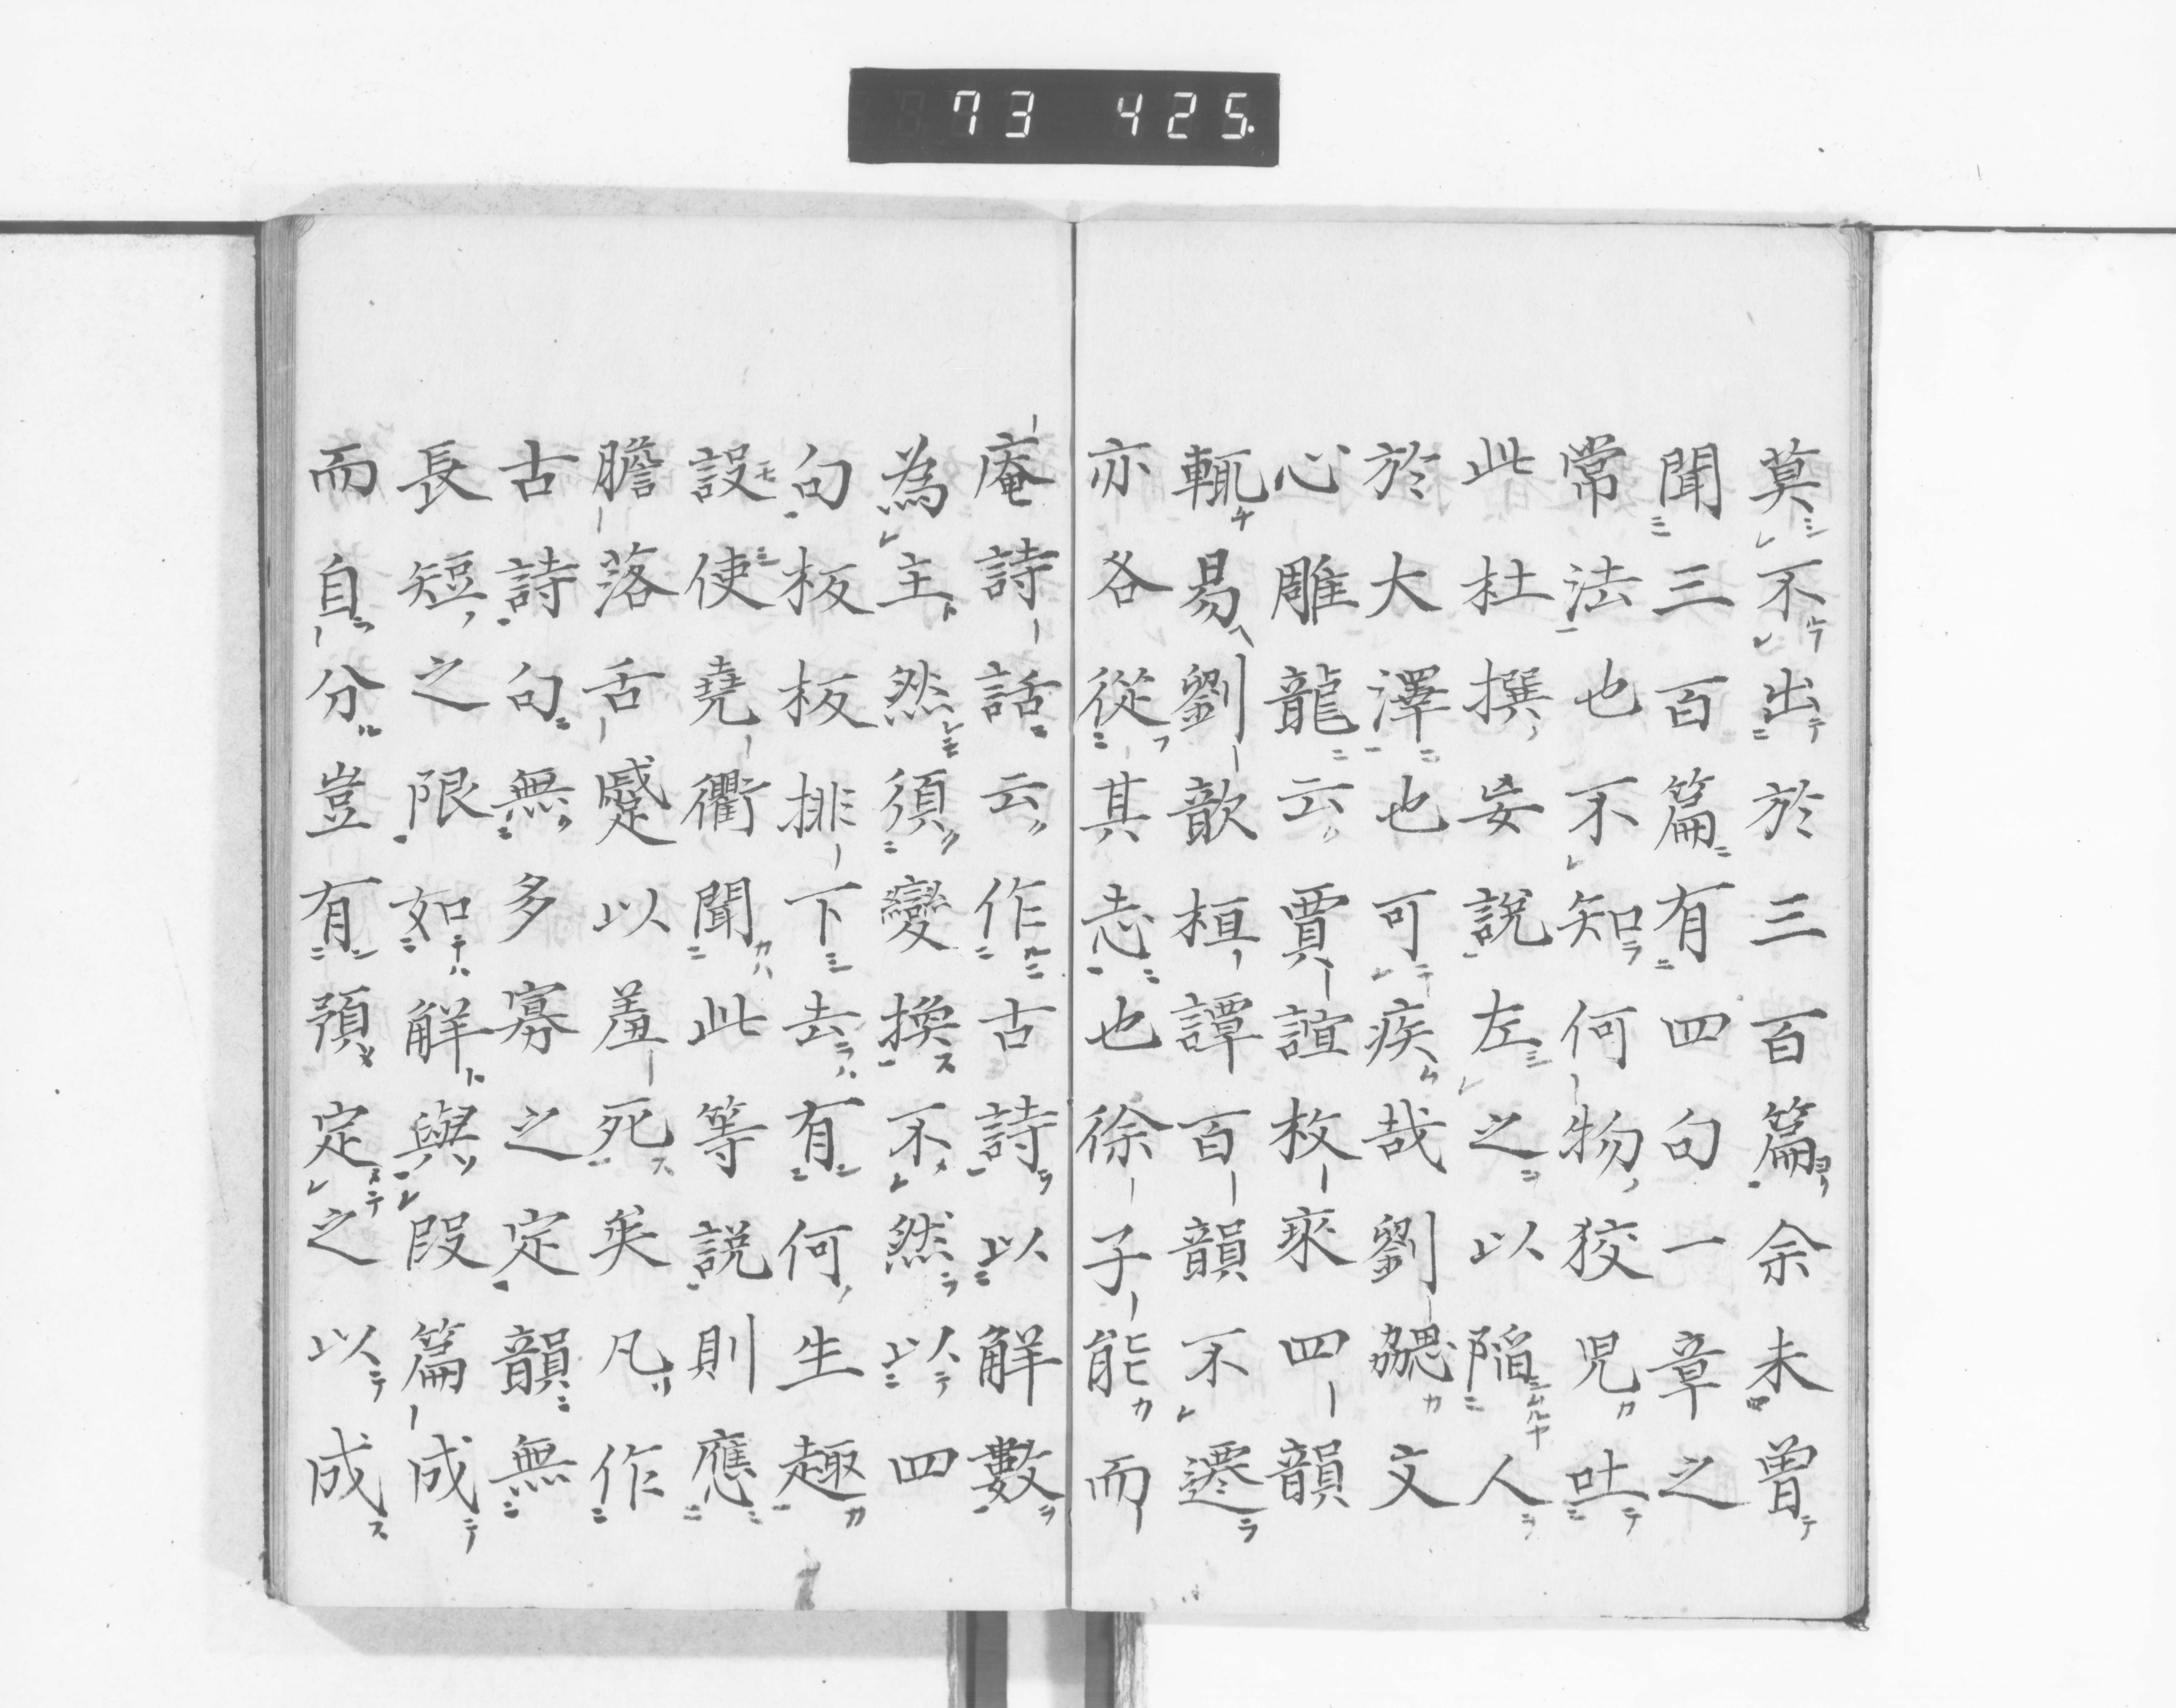 73 425.
莫不出於三百篇余未曽
聞三百篇有四句一章之
常法也不知何物狡児吐
此杜撰妄説左之以陥人
於大澤也可疾哉劉勰文
心雕龍云賈誼枚乘四韻
輙易劉歆桓譚百韻不遷
亦各從其志也徐子能而
庵詩話云作古詩以解數
為主然須變換不然以四
句板板排下去有何生趣
設使堯衢聞此等説則應
膽落舌蹙以羞死矣凡作
古詩句無多寡之定韻無
長短之限如解與段篇成
而自分豈有預定之以成